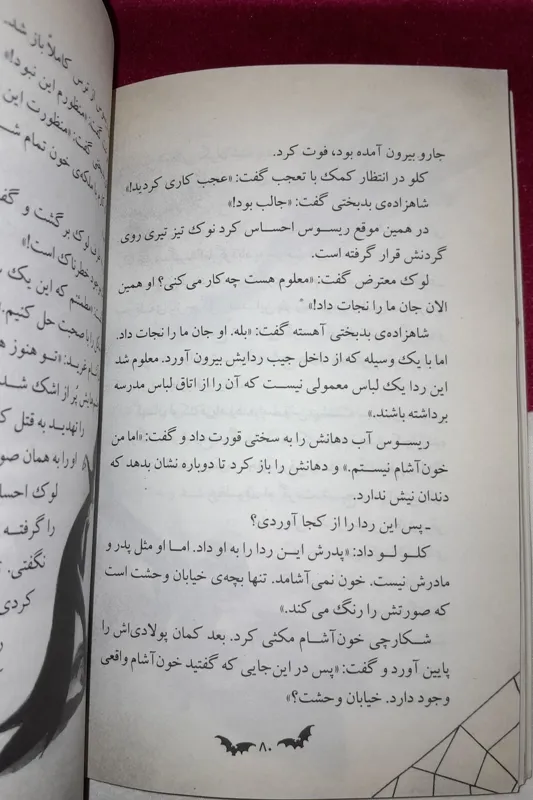 جارو بیرون آمده بود، فوت کرد.
کلو در انتظار کمک با تعجب گفت: «عجب کاری کردید!»
شاهزاده‌ی بدبختی گفت: «جالب بود!»
در همین موقع ریسوس احساس کرد نوک تیز تیری روی
گردنش قرار گرفته است.
لوک معترض گفت: «معلوم هست چه‌کار می‌کنی؟ او همین
الان جان ما را نجات داد!»
شاهزاده‌ی بدبختی آهسته گفت: «بله. او جان ما را نجات داد.
اما با یک وسیله که از داخل جیب ردایش بیرون آورد. معلوم شد
این ردا یک لباس معمولی نیست که آن را از اتاق لباس مدرسه
برداشته باشند.»
ریسوس آب دهانش را به سختی قورت داد و گفت: «اما من
خون‌آشام نیستم.» و دهانش را باز کرد تا دوباره نشان بدهد که
دندان نیش ندارد.
ـ پس این ردا را از کجا آوردی؟
کلو لو داد: «پدرش این ردا را به او داد. اما او مثل پدر و
مادرش نیست. خون نمی‌آشامد. تنها بچه‌ی خیابان وحشت است
که صورتش را رنگ می‌کند.»
شکارچی خون‌آشام مکثی کرد. بعد کمان پولادی‌اش را
پایین آورد و گفت: «پس در این‌جایی که گفتید خون‌آشام واقعی
وجود دارد. خیابان وحشت؟»
۸۰
از ترس کاملاً باز شد.
گفت: «منظورم این نبود!»
گفت: «منظورت این
خون تمام
لوک برگشت و
خطرناک است!»
که این یک
را با صحبت حل کنیم.»
«تو هنوز
پُر از اشک شد
را تهدید به قتل
او را به همان
لوک
را گرفته
نگفتی.
کردی